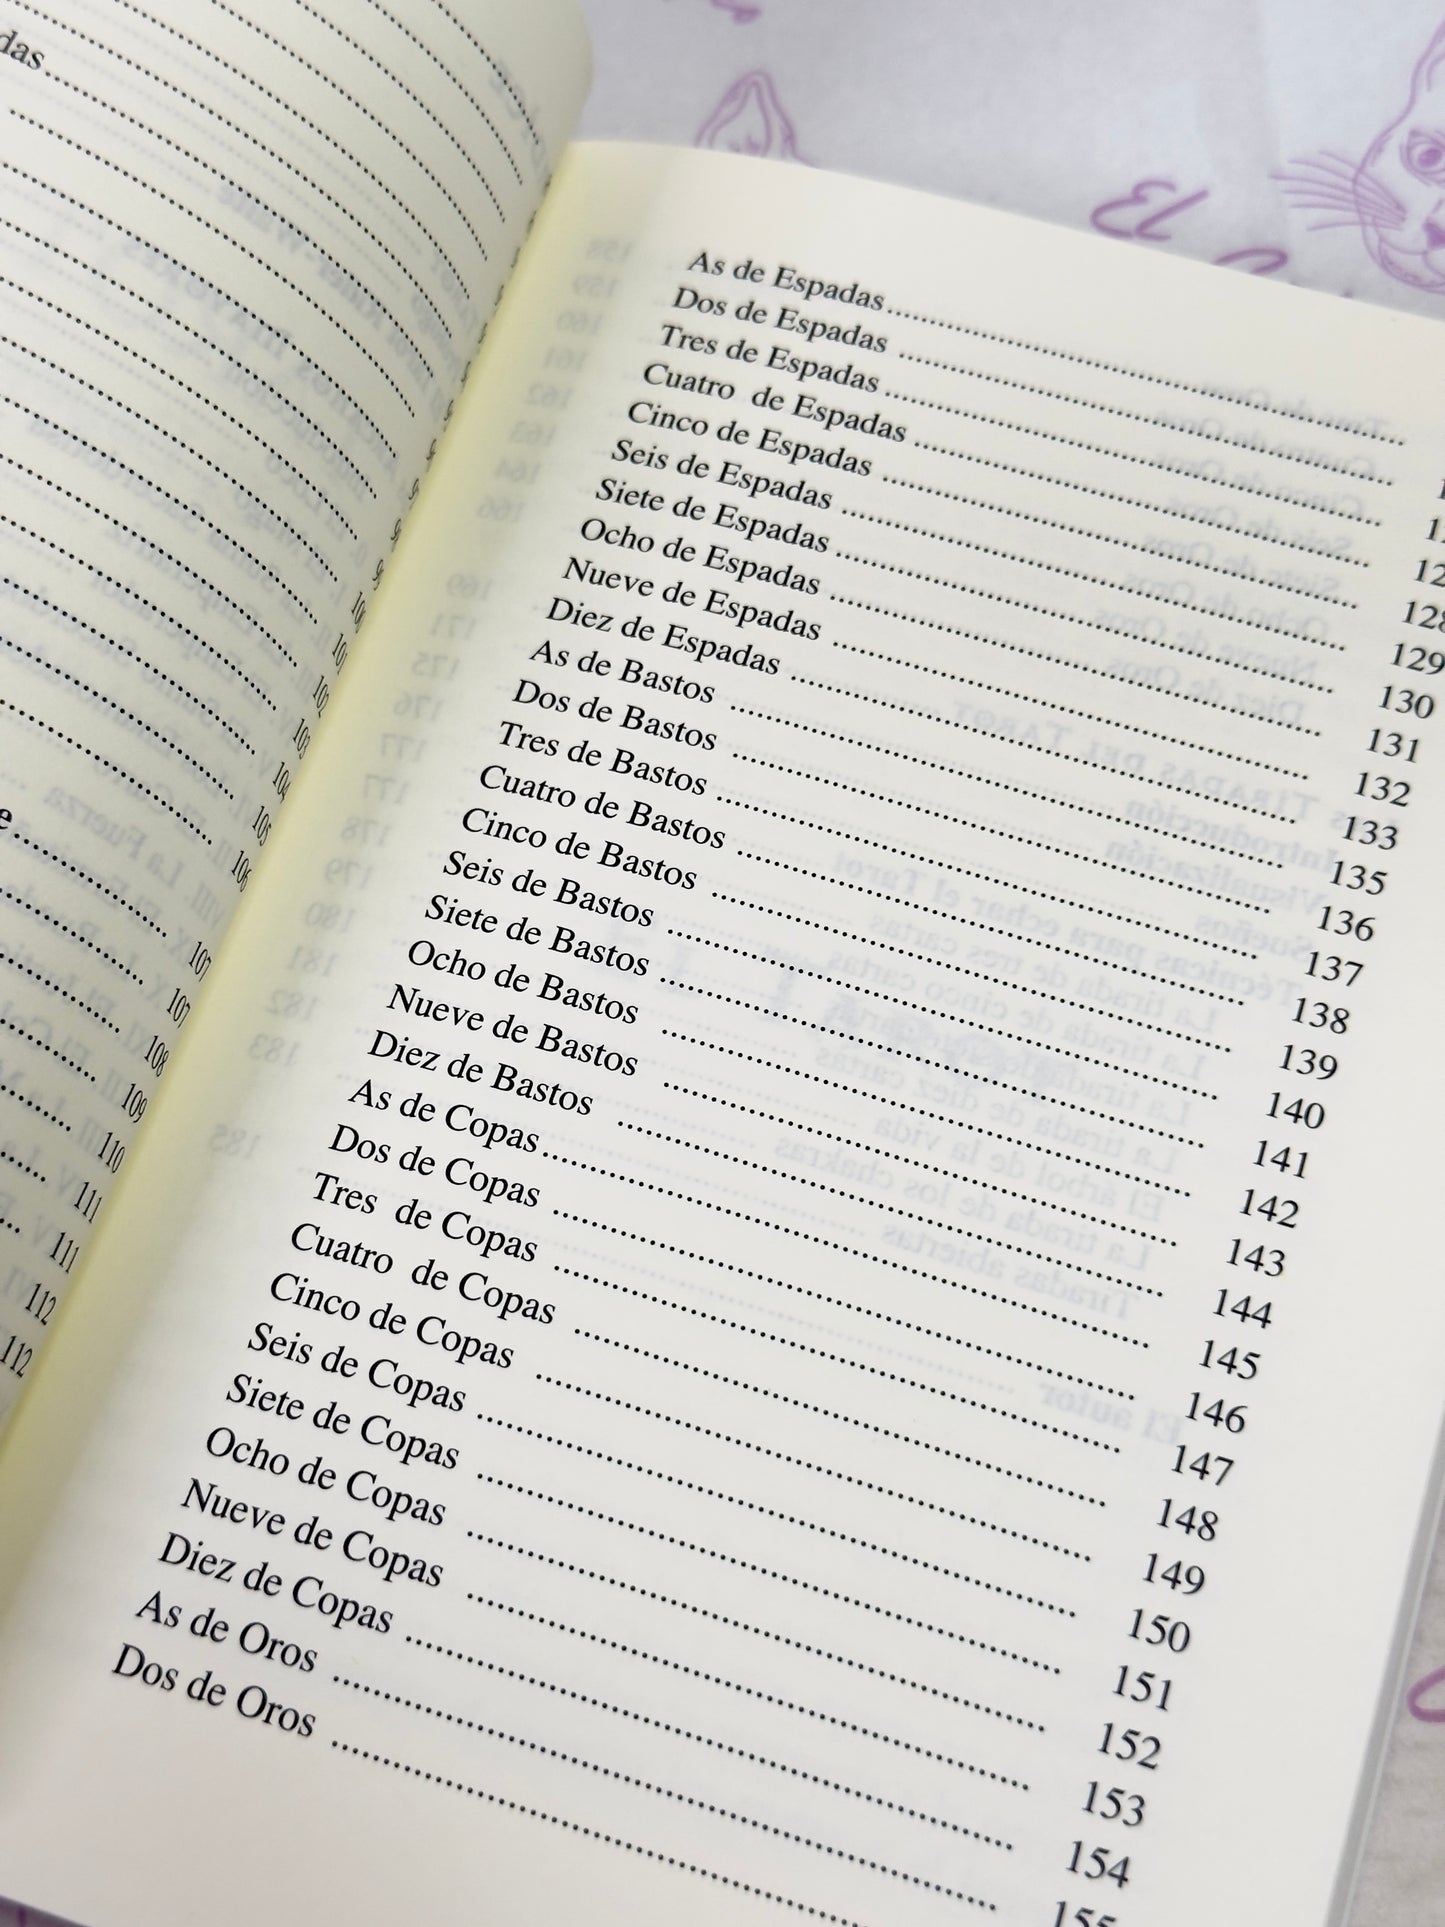 100
101
102
103
104
105
106
107
107
108
109
110
111
111
112
112
As de Espadas
Dos de Espadas
Tres de Espadas
Cuatro de Espadas
Cinco de Espadas 128
Seis de Espadas 129
Siete de Espadas 130
Ocho de Espadas 131
Nueve de Espadas 132
Diez de Espadas 133
As de Bastos 135
Dos de Bastos 136
Tres de Bastos 137
Cuatro de Bastos 138
Cinco de Bastos 139
Seis de Bastos 140
Siete de Bastos 141
Ocho de Bastos 142
Nueve de Bastos 143
Diez de Bastos 144
As de Copas 145
Dos de Copas 146
Tres de Copas 147
Cuatro de Copas 148
Cinco de Copas 149
Seis de Copas 150
Siete de Copas 151
Ocho de Copas 152
Nueve de Copas 153
Diez de Copas 154
As de Oros 155
Dos de Oros